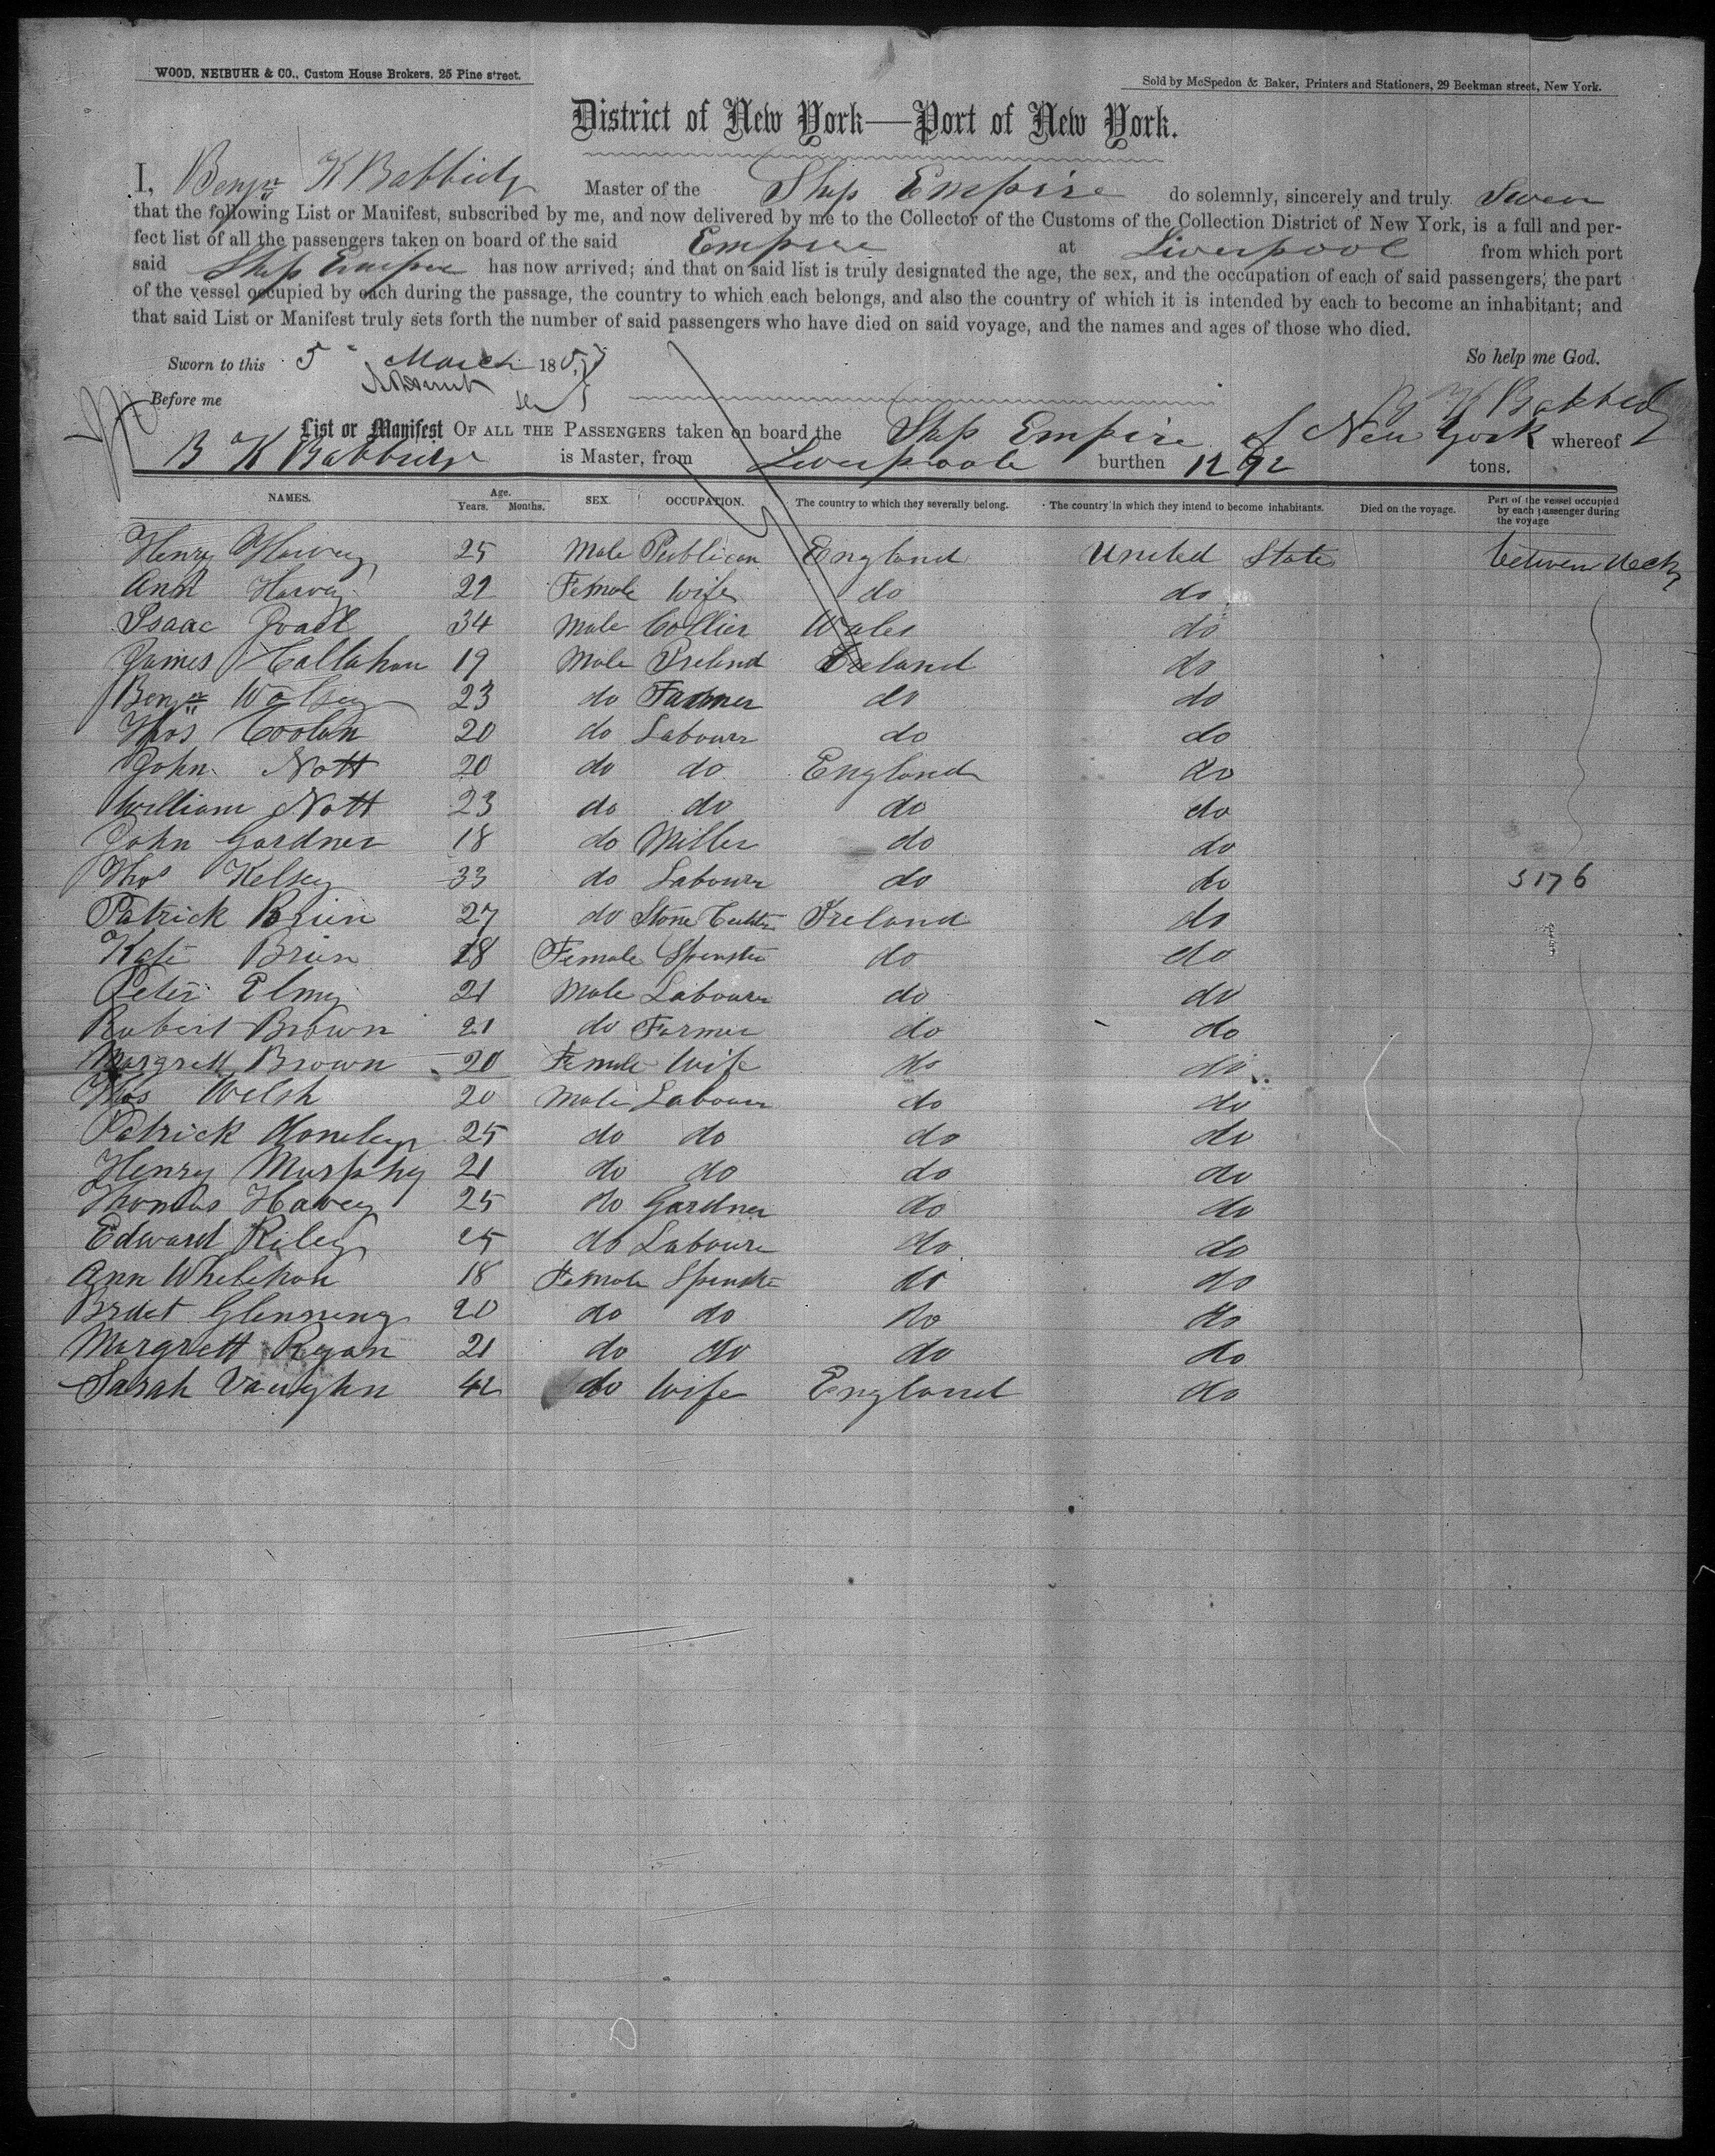 WOOD, NEIBUHR & CO., Custom House Brokers, 25 Pine street.
Sold by McSpedon & Baker, Printers and Stationers, 29 Beekman street, New York.
District of New York—Port of New York.
I, Benjn K Babbidg Master of the Ship Empire do solemnly, sincerely and truly Swear
that the following List or Manifest, subscribed by me, and now delivered by me to the Collector of the Customs of the Collection District of New York, is a full and per-
fect list of all the passengers taken on board of the said Empire at Liverpool from which port
said Ship Empire has now arrived; and that on said list is truly designated the age, the sex, and the occupation of each of said passengers, the part
of the vessel occupied by each during the passage, the country to which each belongs, and also the country of which it is intended by each to become an inhabitant; and
that said List or Manifest truly sets forth the number of said passengers who have died on said voyage, and the names and ages of those who died.
Sworn to this 5 March 1857 So help me God.
Before me B K Babbidg
List or Manifest OF ALL THE PASSENGERS taken on board the Ship Empire of New York whereof
B K Babbidg is Master, from Liverpoole burthen 1292 tons.
NAMES. Age. Years. Months. SEX. OCCUPATION. The country to which they severally belong. The country in which they intend to become inhabitants. Died on the voyage. Part of the vessel occupied by each passenger during the voyage
Henry Harvey 25 Male Publican England United State between decks
Ann Harvey 22 Female Wife do do
Isaac 34 Male Collier Wales do
James Callahan 19 Male Ireland Ireland do
Benjn Wolsey 23 do Farmer do do
Thos 20 do Labourr do do
John Nott 20 do do England do
William Nott 23 do do do do
John Gardner 18 do Miller do do
Thos Kelsey 33 do Labourr do do 5176
Patrick Brien 27 do Stone Cutter Ireland do
Kate Brien 18 Female Spinster do do
Peter Elmy 21 Male Labourr do do
Robert Brown 21 do Farmer do do
Margrett Brown 20 Female Wife do do
Thos Welsh 20 Male Labourr do do
Patrick 25 do do do do
Henry Murphy 21 do do do do
Thomas Havey 25 do Gardner do do
Edward Riley 25 do Labourr do do
Ann Whelehan 18 Female Spinster do do
Bridet Glenneng 20 do do do do
Margrett Ryan 21 do do do do
Sarah Vaughn 42 do Wife England do